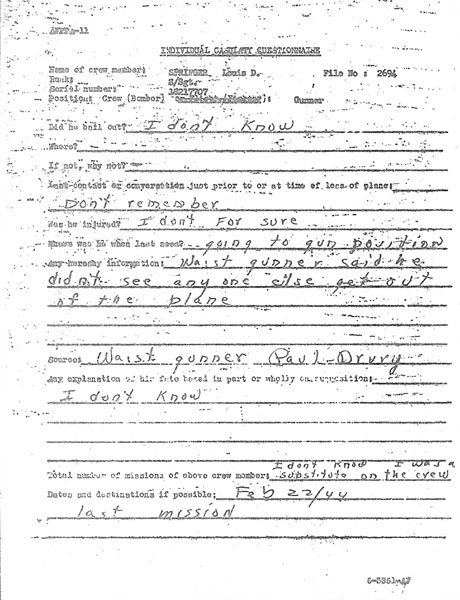 INDIVIDUAL CASUALTY QUESTIONNAIRE
Name of crew member: SPRINGER, Louis D. File No: 2694
Rank: S/Sgt.
Serial number: 18217707
Position: Crew (Bomber) Gunner
Did he bail out? I don't Know
Where?
If not, why not?
Last contact or conversation just prior to or at time of loss of plane:
Don't remember
Was he injured? I don't For sure
Where was he when last seen? going to gun position
Any hearsay information: Waist gunner said he
didn't see any one else get out
of the plane
Source: Waist gunner Paul Drury
Any explanation of his fate based in part or wholly on supposition:
I don't Know
I don't Know I was a
Total number of missions of above crew member: substitute on the crew
Dates and destinations if possible: Feb 22/44
last mission
6-3861-AF